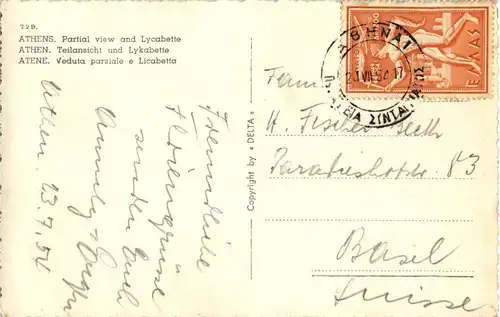 729.
ATHENS. Partial view and Lycabette
ATHEN. Teilansicht und Lykabette
ATENE. Veduta parziale e Licabetta
Athen. 23.7.54
Freundliche
Feriengrüsse
senden Euch
Copyright by "DELTA"
ΑΘΗΝΑΙ
54 17
ΠΛΑΤΕΙΑ ΣΥΝΤΑΓΜΑΤΟΣ
ΕΛΛΑΣ
Fam.
H. Fischer
83
Basel
Suisse